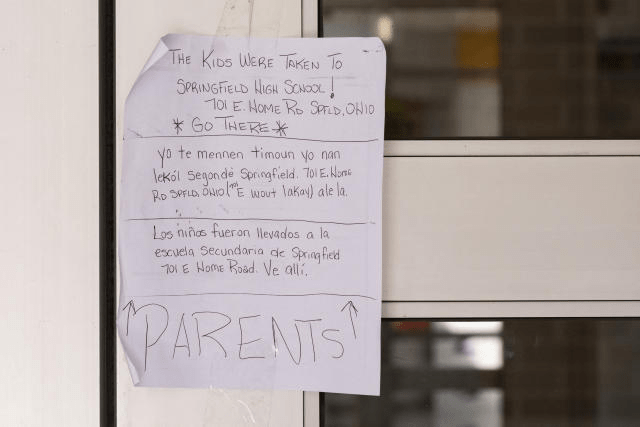 THE KIDS WERE TAKEN TO
SPRINGFIELD HIGH SCHOOL!
701 E. HOME RD SPFLD, OHIO
* GO THERE *
yo te mennen timoun yo nan
lekól segondé Springfield. 701 E. Home
RD SPFLD, OHIO (701 E wout lakay) ale la.
Los niños fueron llevados a la
escuela secundaria de Springfield
701 E Home Road. Ve allí.
↑ PARENTS ↑